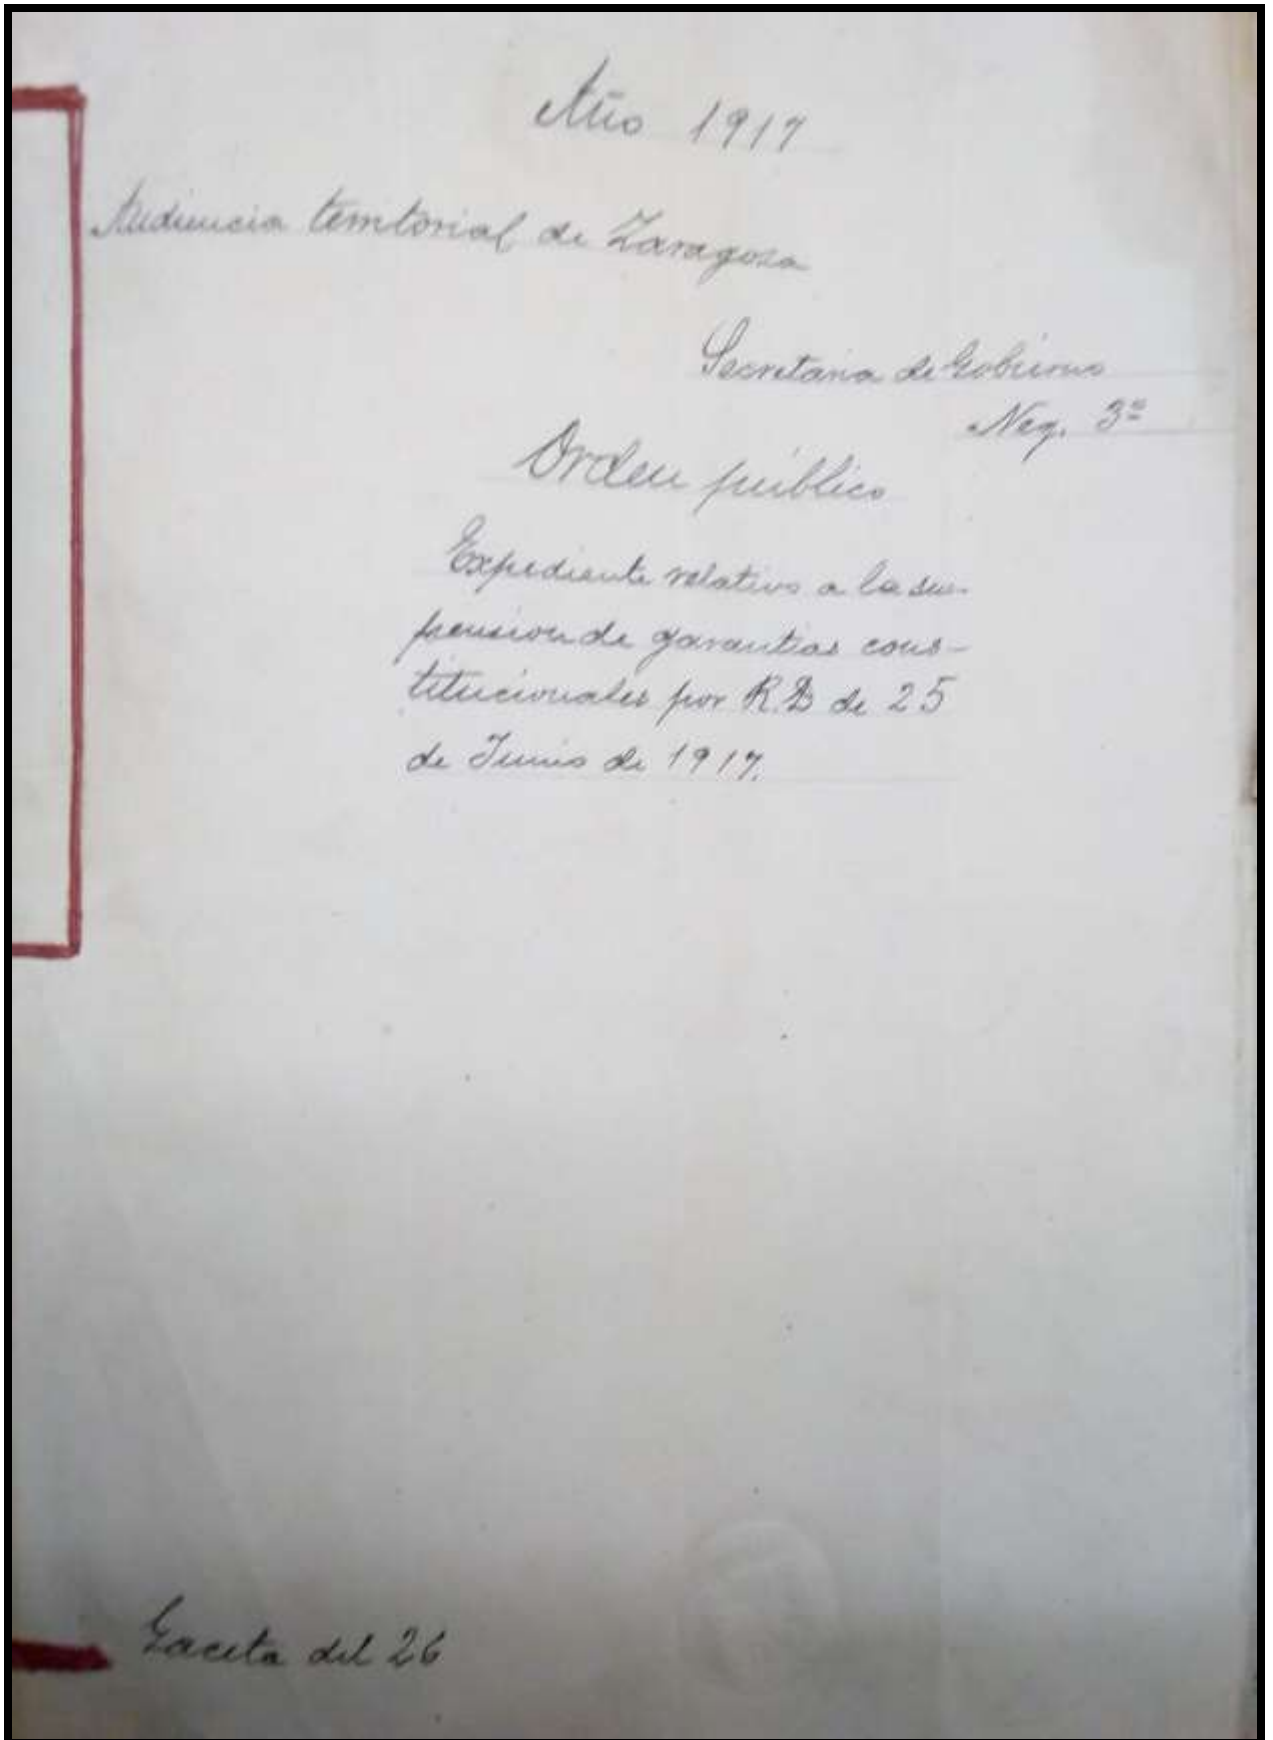 Año 1917
Audiencia territorial de Zaragoza
Secretaria de Gobierno
Neg. 3º
Orden público
Expediente relativo a la sus-
pension de garantias cons-
titucionales por R.D de 25
de Junio de 1917.
Gaceta del 26